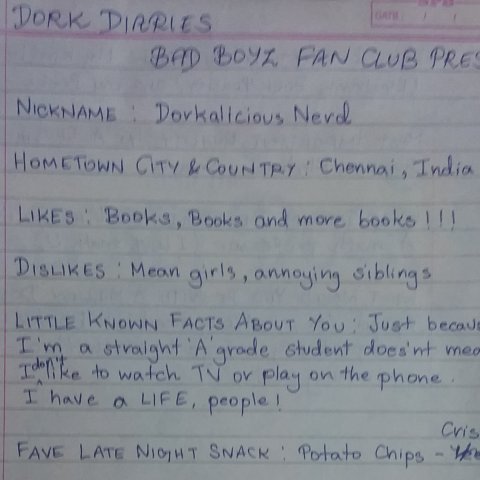 DORK DIARIES
DATE: / /
BAD BOYZ FAN CLUB PRES
NICKNAME : Dorkalicious Nerd
HOMETOWN CITY & COUNTRY : Chennai, India
LIKES : Books, Books and more books!!!
DISLIKES : Mean girls, annoying siblings
LITTLE KNOWN FACTS ABOUT YOU : Just becau
I'm a straight 'A' grade student does'nt mea
I don't like to watch TV or play on the phone.
I have a LIFE, people!
Cris
FAVE LATE NIGHT SNACK : Potato Chips -